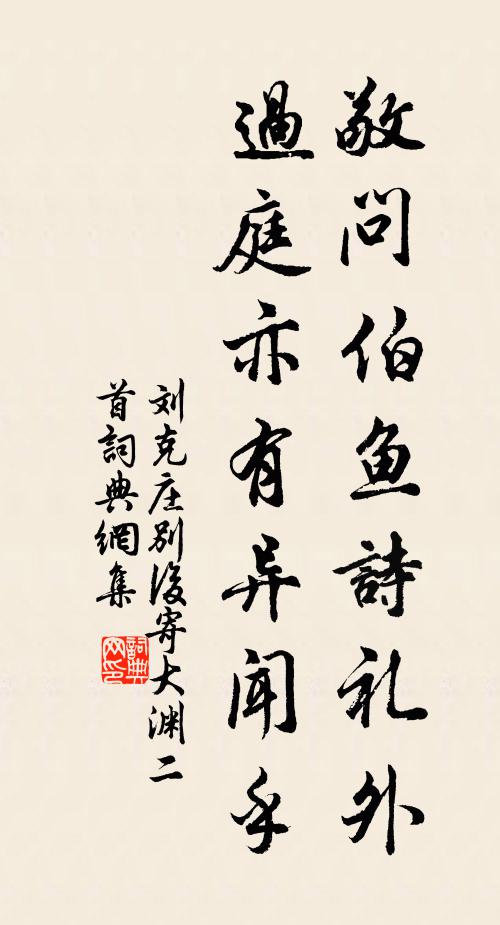 敬问伯鱼詩礼外
過庭亦有异聞乎
刘克庄别後寄大渊二
首詞典網集
詞典
网印